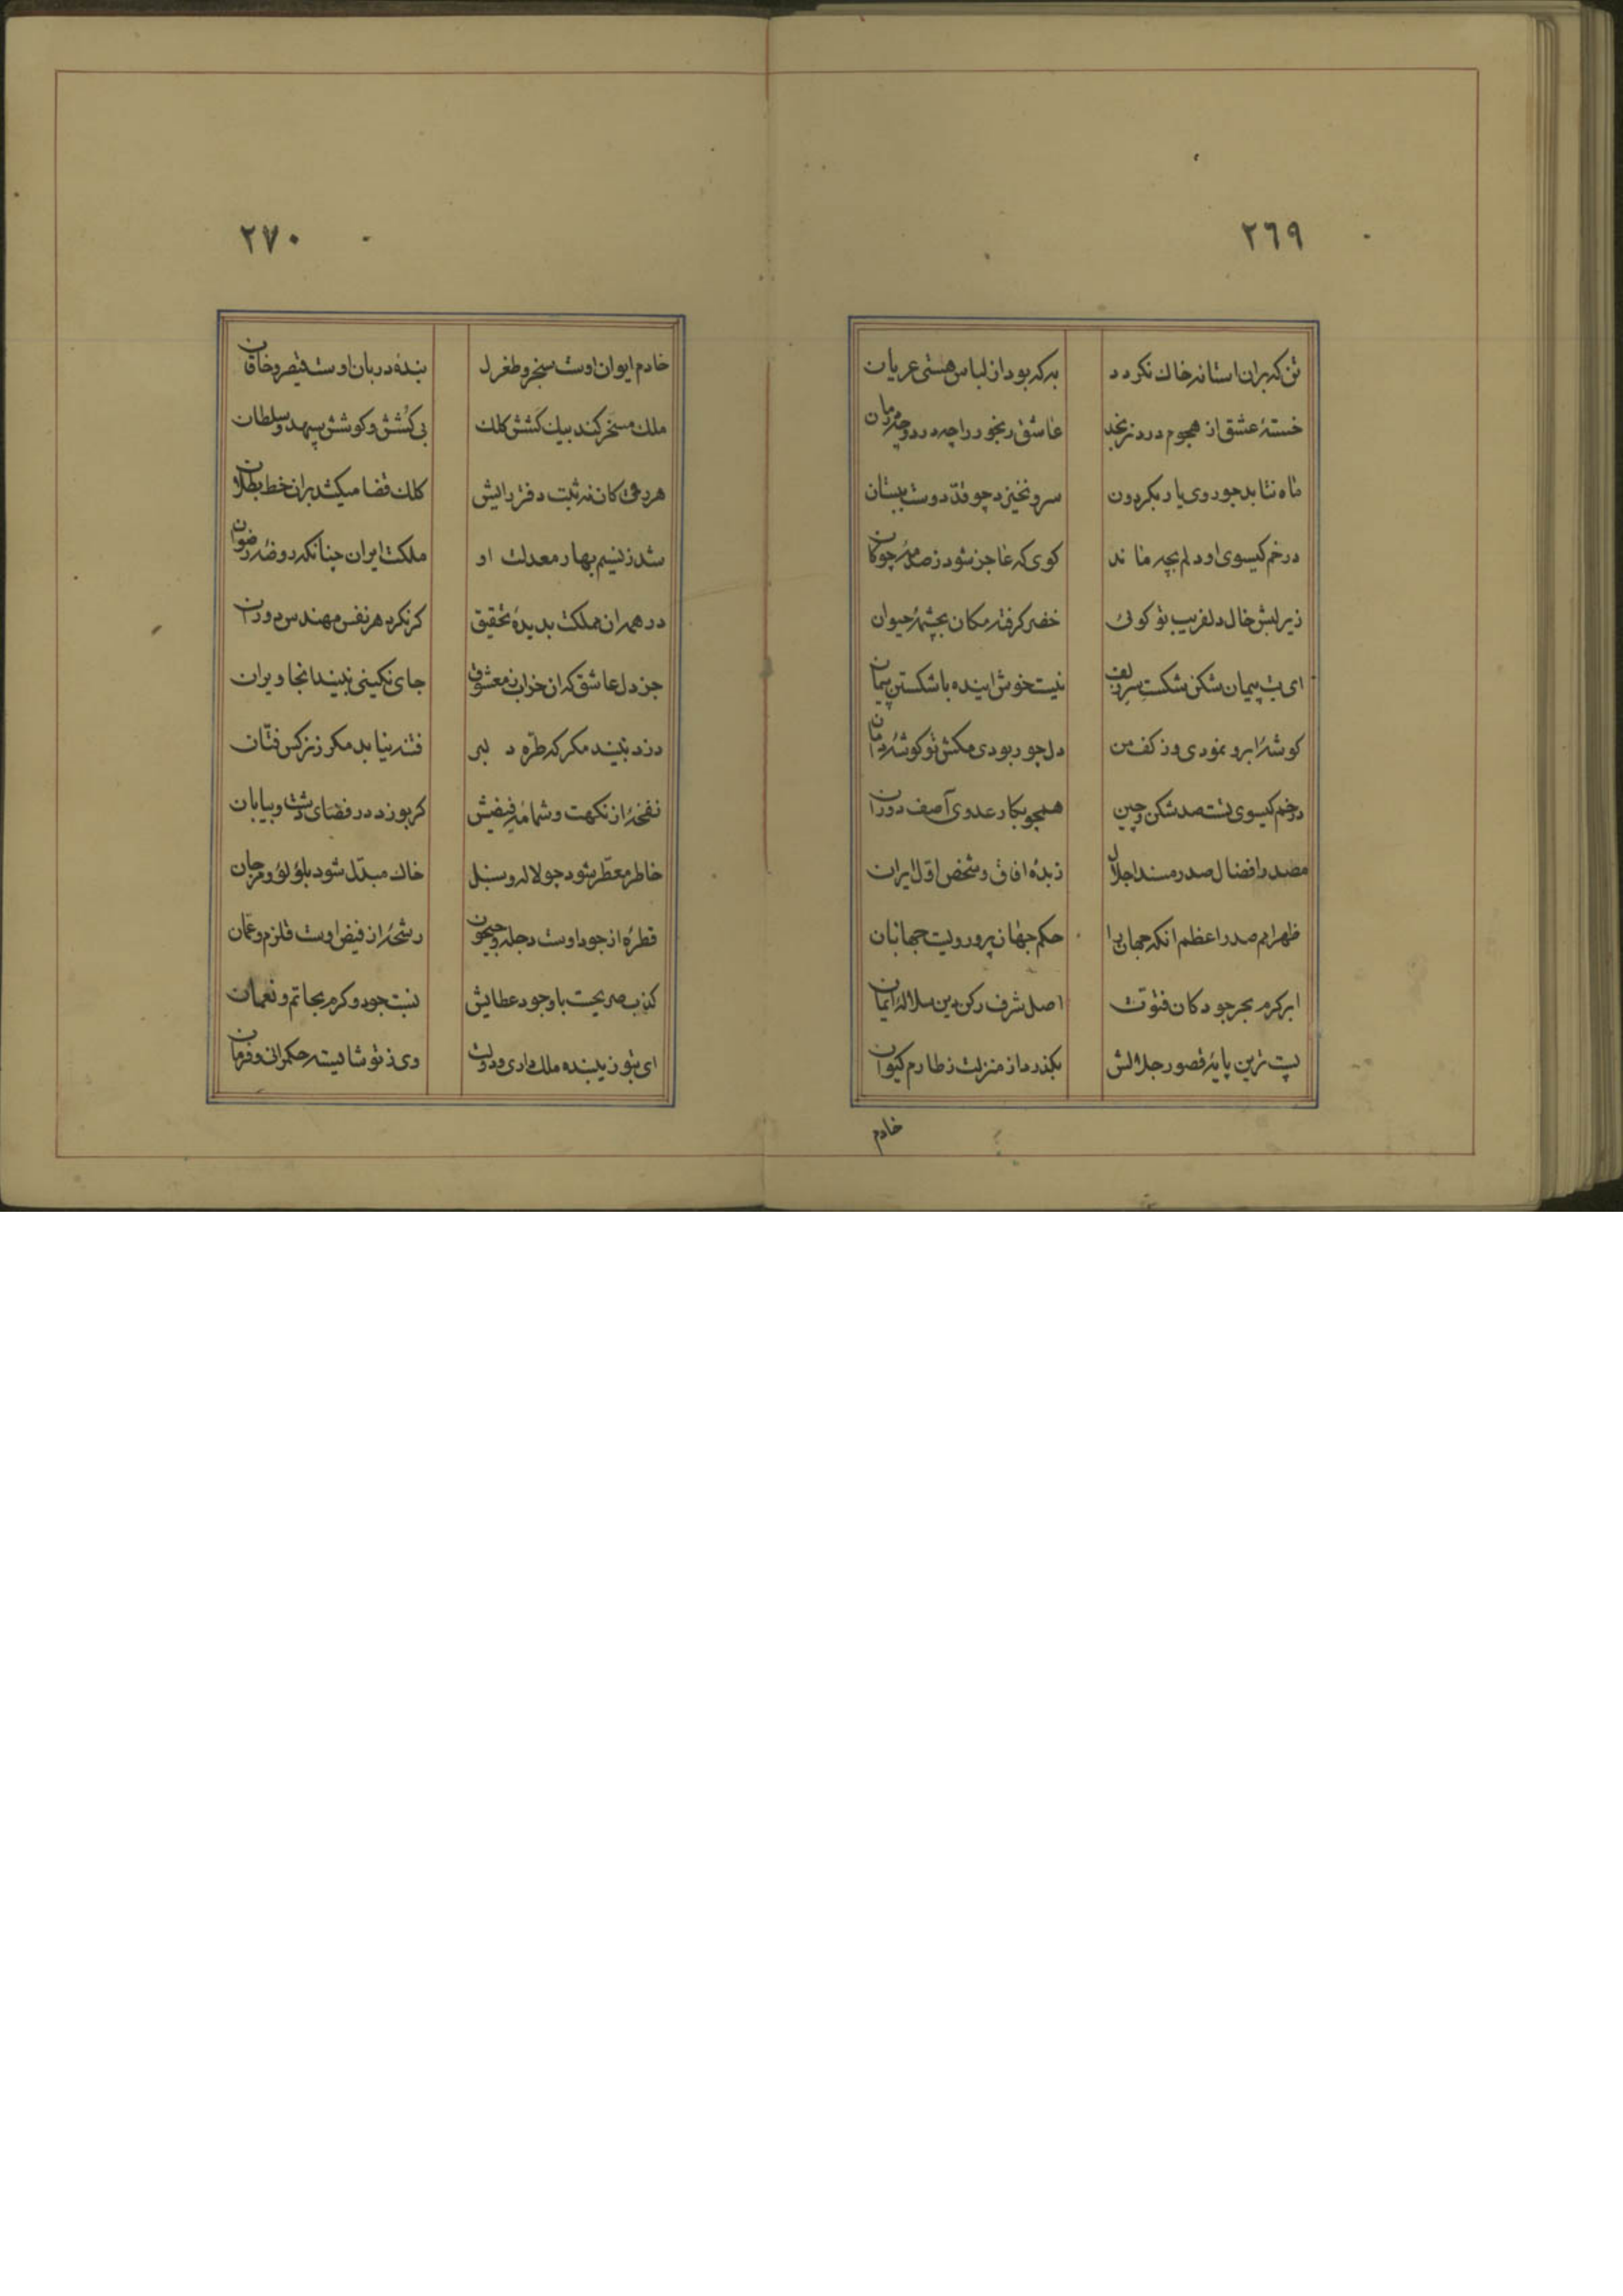 ٢٦٩
تن که بران استانه خاک نکردد
به که بود از لباس هستی عریان
خستهٔ عشق از هجوم درد نرنجد
عاشق رنجور را چه درد و چه درمان
ماه نتابد چو روی یار بکردون
سرو نخیزد چو قدّ دوست ببستان
در خم کیسوی او دلم بچه ماند
کوی که عاجز شود ز صدمهٔ چوکان
زیر لبش خال دلفریب تو کوئی
خضر کرفته مکان بچشمهٔ حیوان
ای بت پیمان شکن شکست سر زلف
نیست خوش اینده با شکستن پیمان
کوشهٔ ابرو نمودی وز کف من
دل چو ربودی مکش تو کوشهٔ دامان
در خم کیسوی تست صد شکن و چین
همچو بکار عدوی آصف دوران
مصدر افضال صدر مسند اجلال
زبدهٔ افاق و شخص اوّل ایران
ظهر امم صدر اعظم انکه جهان را
حکم جهان پرور ویست جهانبان
ابر کرم بحر جود کان فتوّت
اصل شرف رکن دین سلالهٔ ایمان
پست ترین پایهٔ قصور جلالش
بکذرد از منزلت ز طارم کیوان
خادم
٢٧٠
خادم ایوان اوست سنجر و طغرل
بندهٔ دربان اوست قیصر و خاقان
ملک مسخّر کند بیک کَشش کلک
بی کُشش و کوشش سپهبد و سلطان
هر رقمی کان نه ثبت دفتر رایش
کلک قضا میکشد بران خط بطلان
شد ز نسیم بهار معدلت او
ملکت ایران چنانکه روضهٔ رضوان
در همه ان مملکت بدیدهٔ تحقیق
کر نکرد هر نفس مهندس دوران
جز دل عاشق که ان خراب معشوق
جای نکینی نبیند انجا ویران
دزد نبیند مکر که طرّه دلبر
فتنه نیابد مکر ز نرکس فتّان
نفخهٔ از نکهت و شمامهٔ فیضش
کر بوزد در فضای دشت و بیابان
خاطر معطّر شود چو لاله و سنبل
خاک مبدّل شود بلؤلؤ و مرجان
قطرهٔ از جود اوست دجله و جیحون
رشحهٔ از فیض اوست قلزم و عمّان
کذب صریحست با وجود عطایش
نسبت جود و کرم بحاتم و نعمان
ای بتو زیبنده ملک داری و دولت
وی ز تو شایسته حکمرانی و فرمان